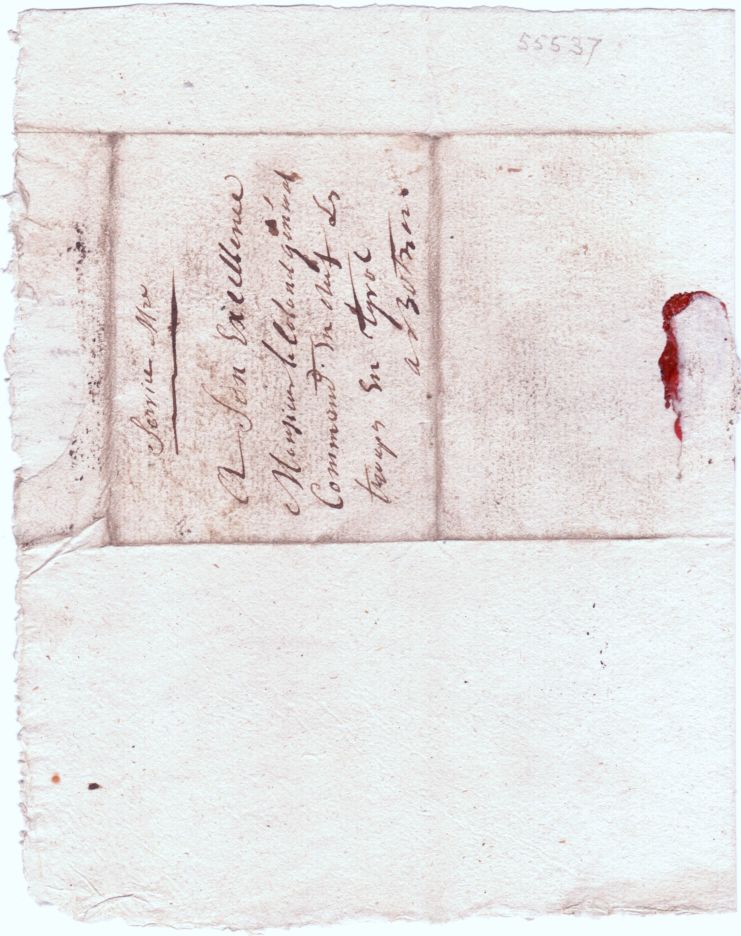 55537
Service Mre
A Son Excellence
Monsieur le
Command. En chef des
troupes En Tyrol
a Botzen.